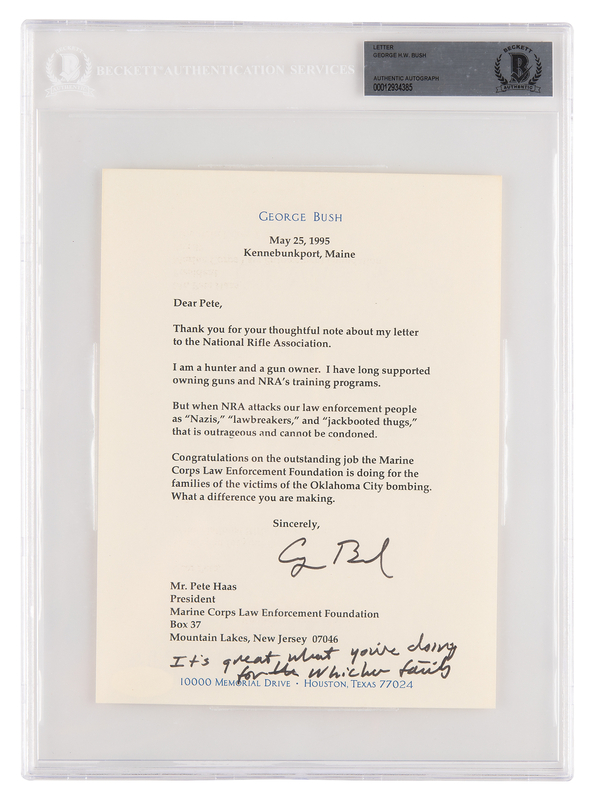 BECKETT AUTHENTICATION SERVICES
LETTER
GEORGE H.W. BUSH
AUTHENTIC AUTOGRAPH
00012934385
BECKETT
B
AUTHENTIC
GEORGE BUSH
May 25, 1995
Kennebunkport, Maine
Dear Pete,
Thank you for your thoughtful note about my letter
to the National Rifle Association.
I am a hunter and a gun owner. I have long supported
owning guns and NRA's training programs.
But when NRA attacks our law enforcement people
as "Nazis," "lawbreakers," and "jackbooted thugs,"
that is outrageous and cannot be condoned.
Congratulations on the outstanding job the Marine
Corps Law Enforcement Foundation is doing for the
families of the victims of the Oklahoma City bombing.
What a difference you are making.
Sincerely,
G Bush
Mr. Pete Haas
President
Marine Corps Law Enforcement Foundation
Box 37
Mountain Lakes, New Jersey 07046
It's great what you're doing
for the Whicher family
10000 MEMORIAL DRIVE · HOUSTON, TEXAS 77024